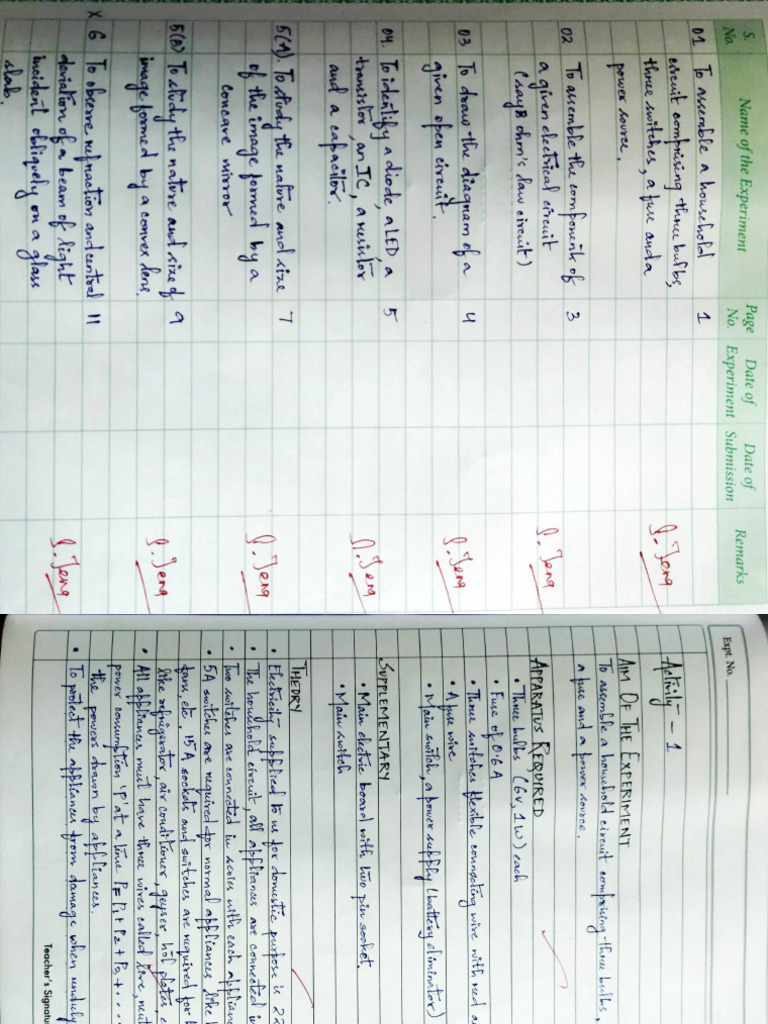 S. No. Name of the Experiment Page No. Date of Experiment Date of Submission Remarks
01 To assemble a household 1
circuit comprising three bulbs,
three switches, a fuse and a
power source.
02 To assemble the components of 3
a given electrical circuit
(say 8 ohm's law circuit)
03 To draw the diagram of a 4
given open circuit.
04. To identify a diode, a LED a 5
transistor, an IC, a resistor
and a capacitor.
5(A). To study the nature and size 7
of the image formed by a
concave mirror
5(B) To study the nature and size of 9
image formed by a convex lens.
x 6 To observe refraction and 11
deviation of a beam of light
incident obliquely on a glass
slab.
Expt. No.
Activity - 1
AIM OF THE EXPERIMENT
To assemble a household circuit comprising three bulbs,
a fuse and a power source.
APPARATUS REQUIRED
• Three bulbs (6v, 1w) each
• Fuse of 0.6A
• Three switches flexible connecting wire with red
• A fuse wire
• Main switch, a power supply (battery eliminator)
SUPPLEMENTARY
• Main electric board with two pin socket.
• Main switch
THEORY
• Electricity supplied to us for domestic purpose is
• The household circuit, all appliances are connected
• Two switches are connected in series with each
• 5A switches are required for normal appliances like
fans, etc. 15A sockets and switches are required for
like refrigerator, air conditioner, geyser, hot plates,
• All appliances must have three wires called live,
power consumption 'P' at a time P= P1 + P2 + P3 + ...
the powers drawn by appliances.
• To protect the appliances from damage when unduly
Teacher's